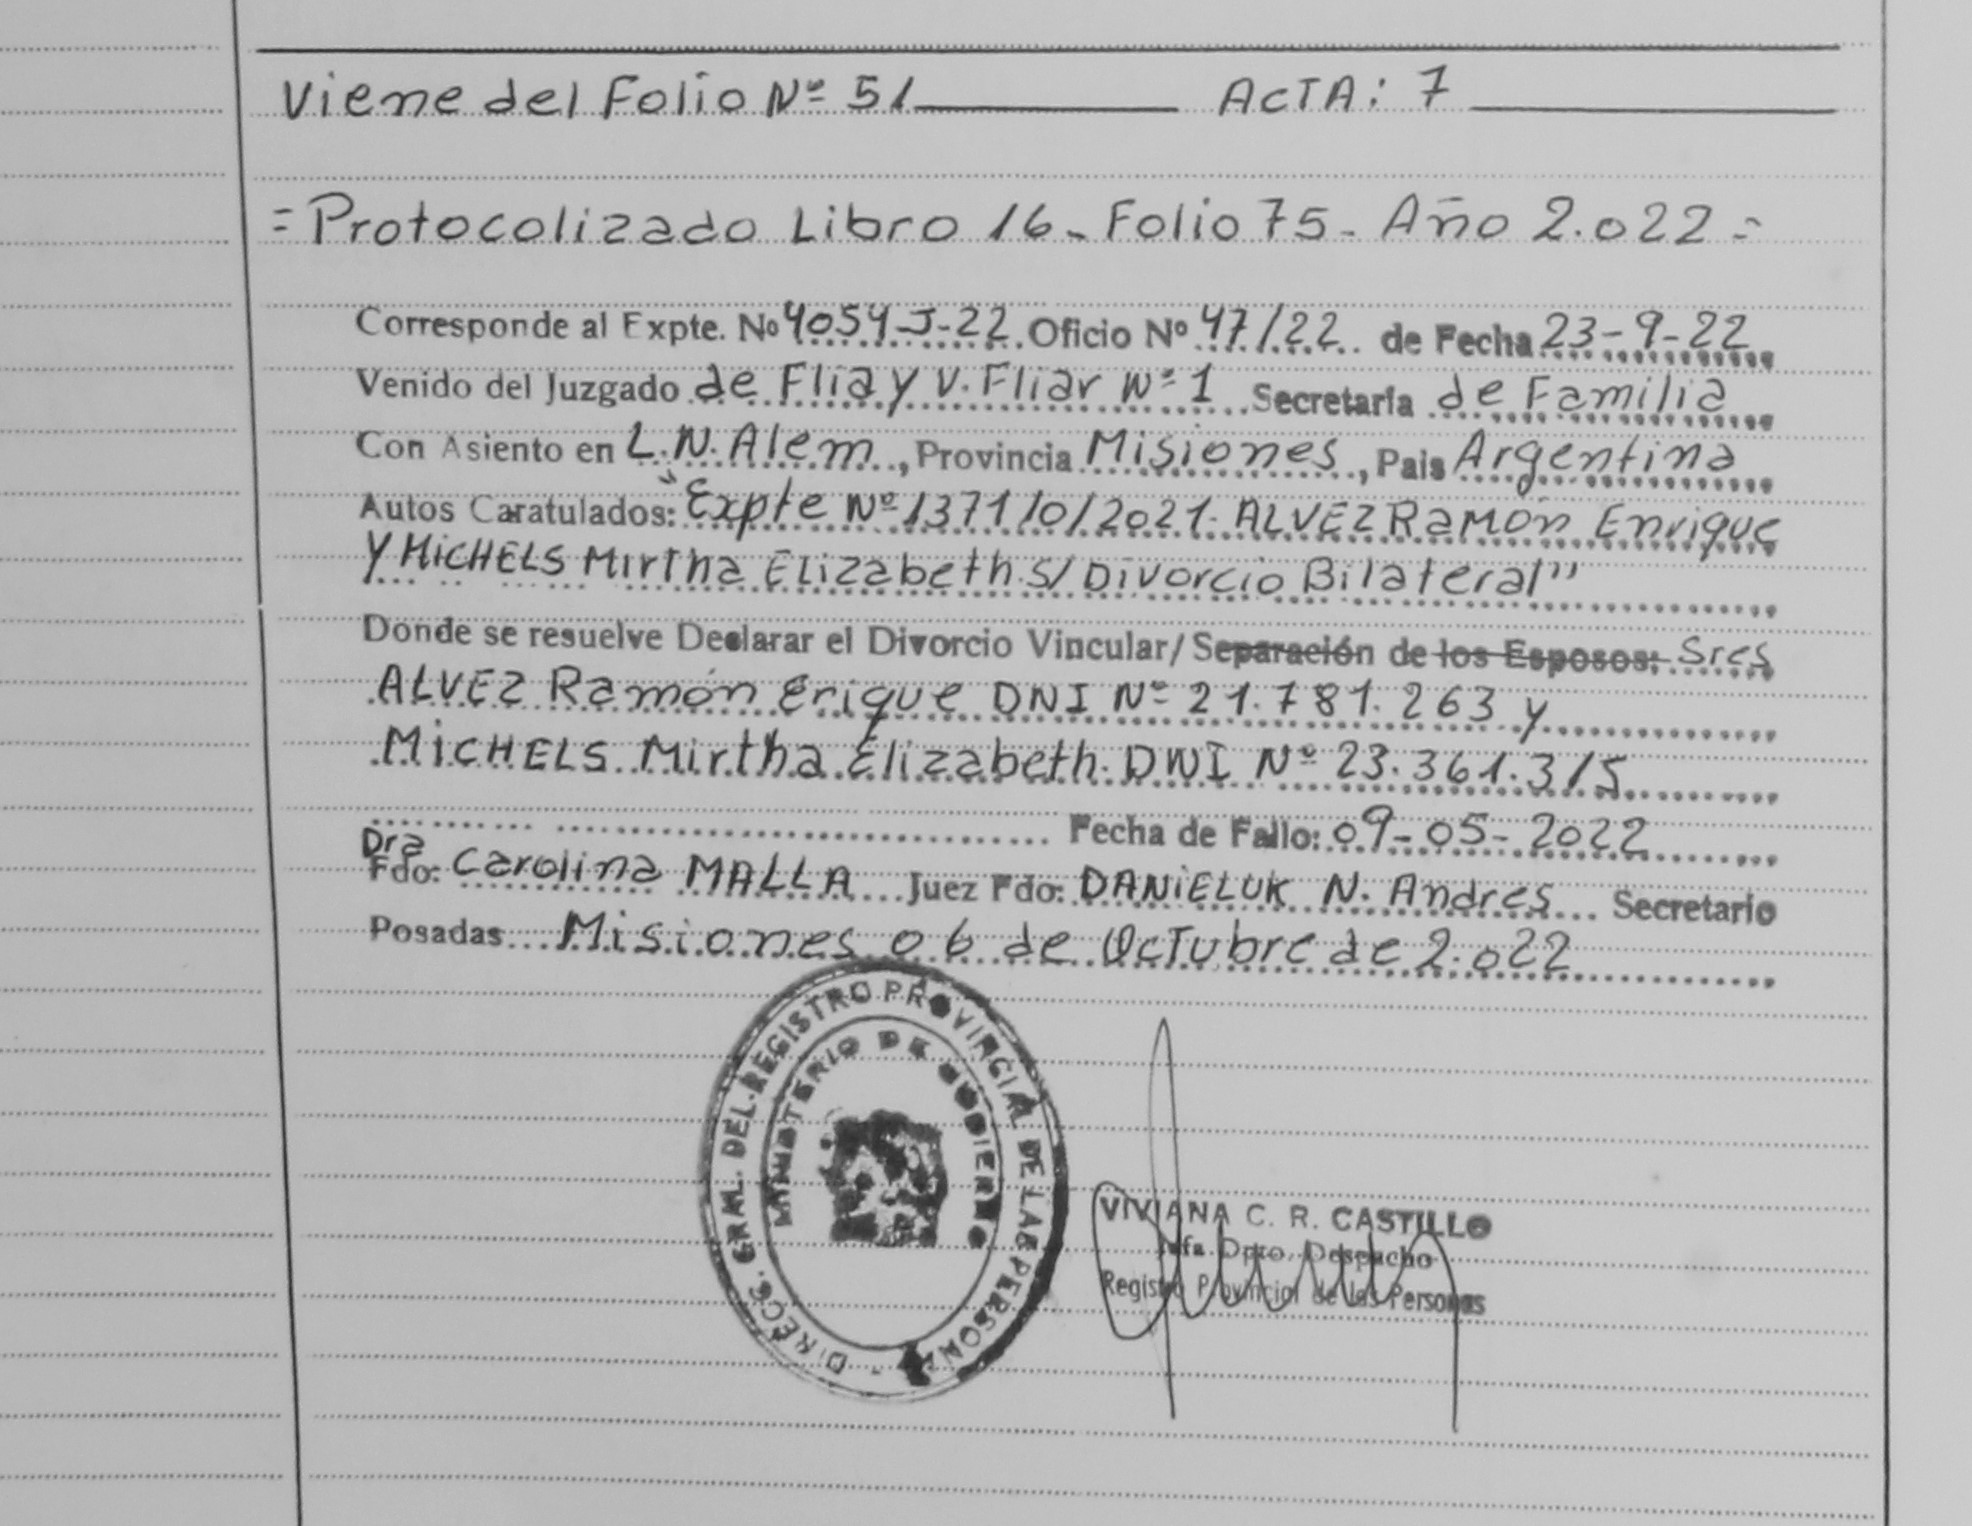 Viene del Folio Nº 51 ACTA: 7
=Protocolizado Libro 16- Folio 75- Año 2.022=
Corresponde al Expte. No 4054-J-22. Oficio Nº 47/22 de Fecha 23-9-22
Venido del Juzgado de Flia y V. Fliar Nº 1 Secretaria de Familia
Con Asiento en L.N. Alem, Provincia Misiones, Pais Argentina
Autos Caratulados: "Expte Nº 1371/0/2021. ALVEZ Ramón Enrique
Y MiCHELS Mirtha Elizabeth S/ Divorcio Bilateral"
Donde se resuelve Declarar el Divorcio Vincular/ Separación de los Esposos: Sres
ALVEZ Ramón Erique DNI Nº 21.781.263 y
MiCHELS Mirtha Elizabeth. DNI Nº 23.361.315
Fecha de Fallo: 09-05-2022
Dra
Fdo: Carolina MALLA Juez Fdo: DANiELUK N. Andres Secretario
Posadas Misiones 06 de Octubre de 2.022
DIRECC. GRAL. DEL REGISTRO PROVINCIAL DE LAS PERSONAS
MINISTERIO DE GOBIERNO
VIVIANA C. R. CASTILLO
Jefa Dpto. Despacho
Registro Provincial de las Personas